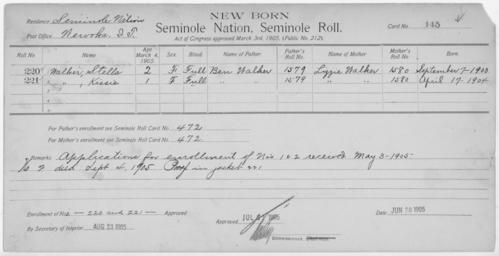 NEW BORN
Residence Seminole Nation
Seminole Nation, Seminole Roll.
Card No. 145
Post Office, Wewoka, I.T.
Act of Congress approved March 3rd, 1905. (Public No. 212).
Roll No Name Age March 4, 1905 Sex. Blood Name of Father Father's Roll No Name of Mother Mother's Roll No. Born.
220 Walker, Stella 2 F Full Ben Walker 1579 Lizzie Walker 1580 September 7-1903
221 " , Kissie 1 F Full " " 1579 " " 1580 April 17-1904
For Father's enrollment see Seminole Roll Card No. 472
For Mother's enrollment see Seminole Roll Card No. 472
Remarks Applications for enrollment of Nos 1 & 2 received May 3-1905
No 2 died Sept 4, 1905 Proof in jacket
Enrollment of Nos - 220 and 221 - Approved
Approved 1905
Date JUN 30 1905
By Secretary of Interior AUG 23 1905